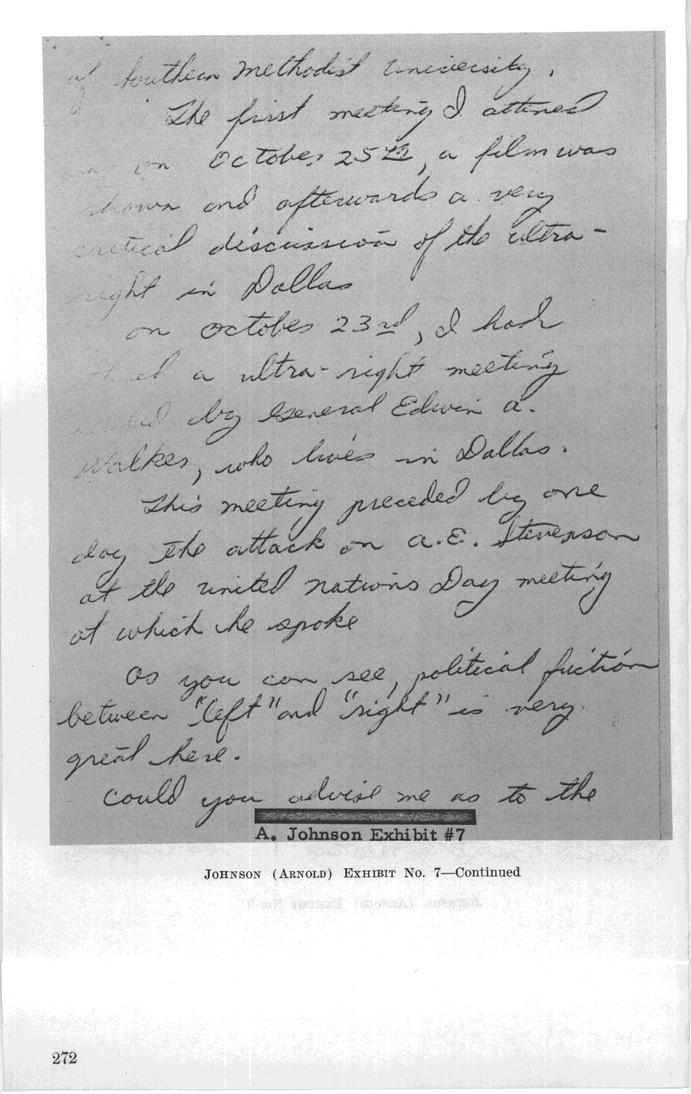 of Southern Methodist University.
The first meeting I attened
was on October 25th, a film was
shown and afterwards a very
critical discussion of the ultra-
right in Dallas
on october 23rd, I had
a ultra-right meeting
by General Edwin A.
Walker, who lives in Dallas.
This meeting preceded by one
day the attack on A.E. Stevenson
at the united nations Day meeting
at which he spoke
As you can see, political friction
between "left" and "right" is very
great here.
Could you advise me as to the
A. Johnson Exhibit #7
JOHNSON (ARNOLD) EXHIBIT No. 7—Continued
272